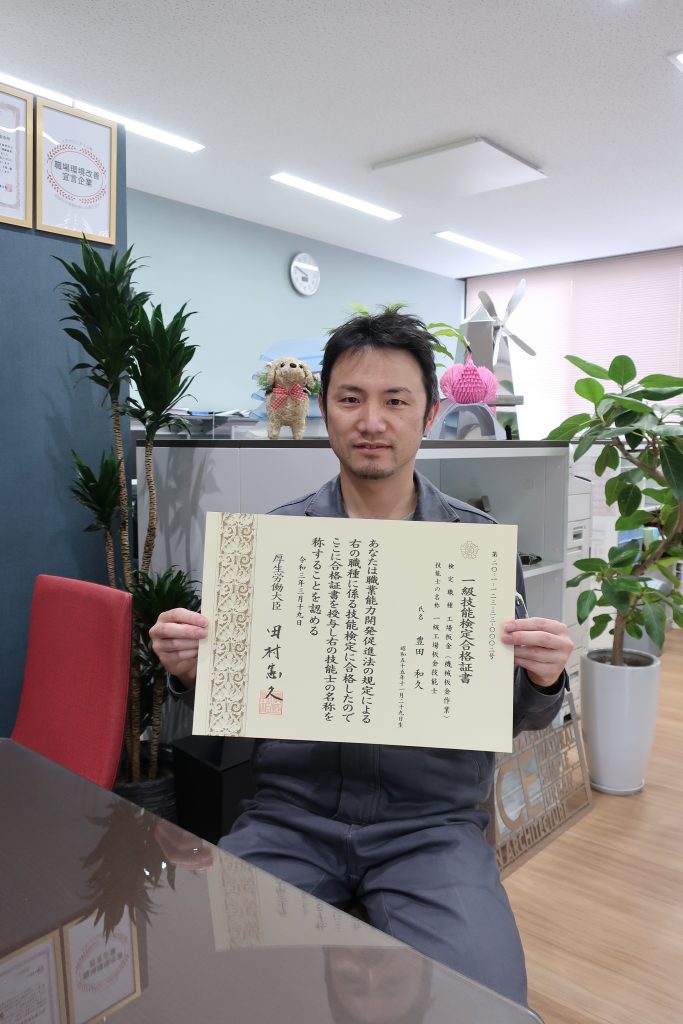 職場環境改善
宣言企業
第二〇-一-一二三-三三-〇〇〇二号
一級技能検定合格証書
検定職種 工場板金(機械板金作業)
技能士の名称 一級工場板金技能士
氏名 豊田 和久
昭和五十五年十一月二十九日生
あなたは職業能力開発促進法の規定による
右の職種に係る技能検定に合格したので
ここに合格証書を授与し右の技能士の名称を
称することを認める
令和三年三月十九日
厚生労働大臣 田村憲久
N ARCHITECTUR